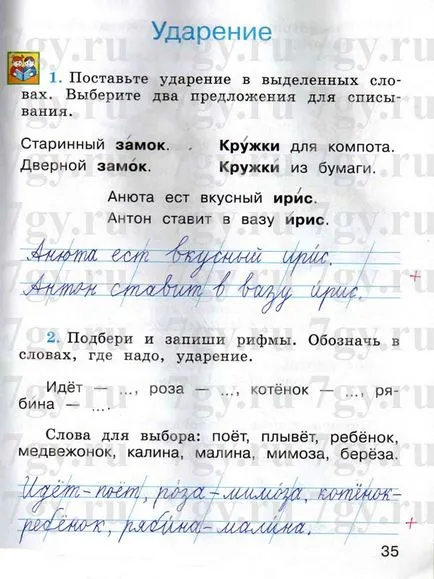 Ударение
1. Поставьте ударение в выделенных сло-
вах. Выберите два предложения для списы-
вания.
Старинный за́мок. Кру́жки для компота.
Дверной замо́к. Кружки́ из бумаги.
Анюта ест вкусный ири́с.
Антон ставит в вазу и́рис.
Анюта ест вкусный ири́с.
Антон ставит в вазу и́рис.
2. Подбери и запиши рифмы. Обозначь в
словах, где надо, ударение.
Идёт — ..., роза — ..., котёнок — ..., ря-
бина — ... .
Слова для выбора: поёт, плывёт, ребёнок,
медвежонок, калина, малина, мимоза, берёза.
Идёт-поёт, ро́за-мимо́за, котёнок-
ребёнок, ряби́на-мали́на.
35
7gy.ru